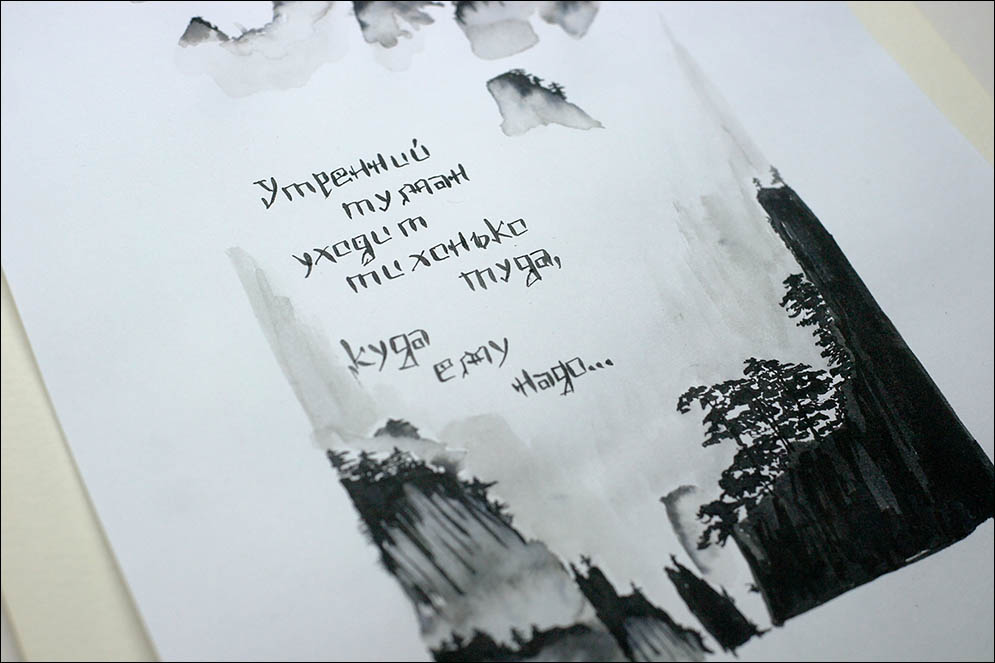 Утренний
туман
уходит
тихонько
туда,
куда
ему
надо...